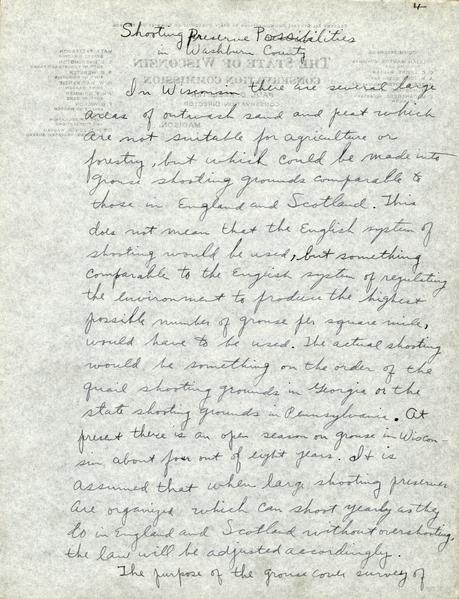 4
Shooting Preserve Possibilities
in Washburn County
In Wisconsin there are several large
areas of outwash sand and peat which
are not suitable for agriculture or
forestry, but which could be made into
grouse shooting grounds comparable to
those in England and Scotland. This
does not mean that the English system of
shooting would be used, but something
comparable to the English system of regulating
the environment to produce the highest
possible number of grouse per square mile,
would have to be used. The actual shooting
would be something on the order of the
quail shooting grounds in Georgia or the
state shooting grounds in Pennsylvania. At
present there is an open season on grouse in Wiscon-
sin about four out of eight years. It is
assumed that when large shooting preserves
are organized which can shoot yearly as they
do in England and Scotland without overshooting,
the law will be adjusted accordingly.
The purpose of the grouse cover survey of
THE STATE OF WISCONSIN
CONSERVATION COMMISSION
CONSERVATION DIRECTOR
MADISON